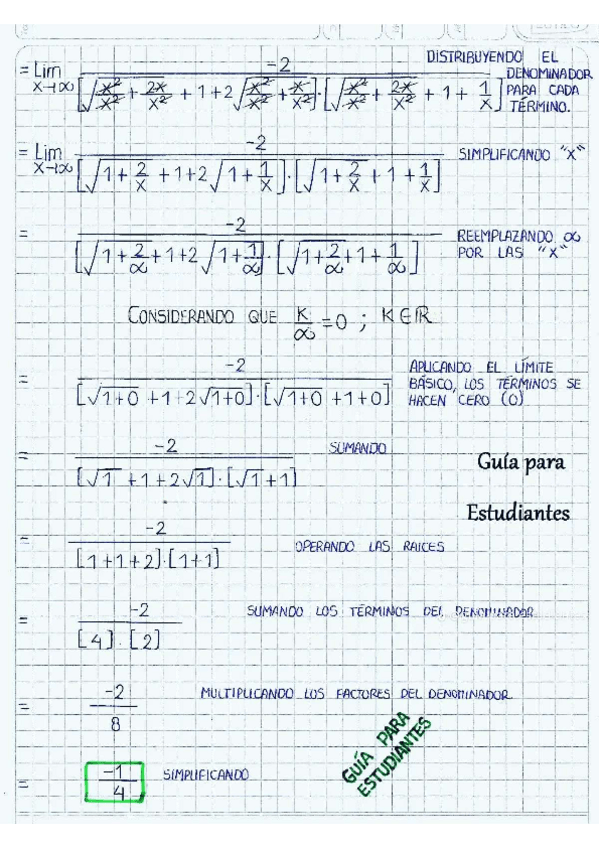 = Lim x→∞ -2 / [√(x²/x² + 2x/x²) + 1 + 2√(x²/x² + x/x²)]·[√(x²/x² + 2x/x²) + 1 + 1/x] DISTRIBUYENDO EL DENOMINADOR PARA CADA TÉRMINO.
= Lim x→∞ -2 / [√(1 + 2/x) + 1 + 2√(1 + 1/x)]·[√(1 + 2/x) + 1 + 1/x] SIMPLIFICANDO "X"
= -2 / [√(1 + 2/∞) + 1 + 2√(1 + 1/∞)]·[√(1 + 2/∞) + 1 + 1/∞] REEMPLAZANDO ∞ POR LAS "X"
CONSIDERANDO QUE K/∞ = 0 ; K∈ℝ
= -2 / [√(1+0) + 1 + 2√(1+0)]·[√(1+0) + 1 + 0] APLICANDO EL LÍMITE BÁSICO, LOS TÉRMINOS SE HACEN CERO (0)
= -2 / [√1 + 1 + 2√1]·[√1 + 1] SUMANDO
Guía para
Estudiantes
= -2 / [1+1+2]·[1+1] OPERANDO LAS RAICES
= -2 / [4]·[2] SUMANDO LOS TÉRMINOS DEL DENOMINADOR
= -2 / 8 MULTIPLICANDO LOS FACTORES DEL DENOMINADOR
GUÍA PARA
ESTUDIANTES
= -1 / 4 SIMPLIFICANDO